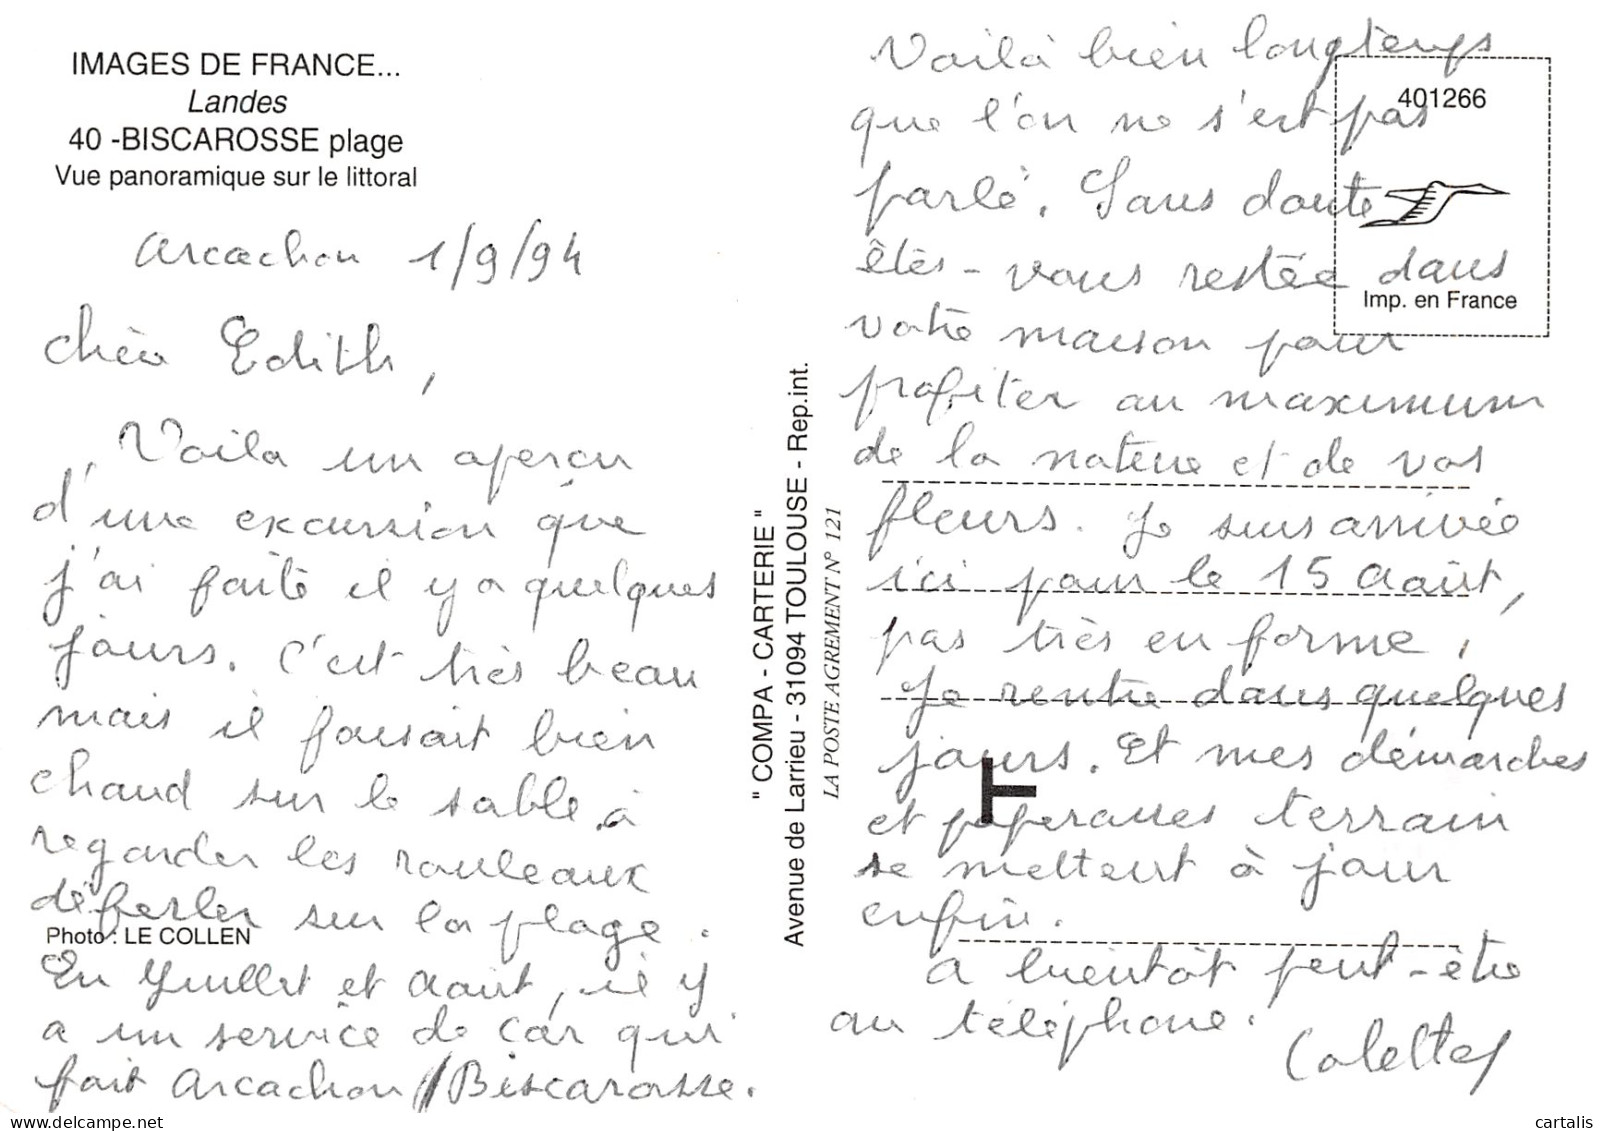 IMAGES DE FRANCE...
Landes
40 -BISCAROSSE plage
Vue panoramique sur le littoral
Arcachon 1/9/94
chère Edith,
Voila un aperçu
d'une excursion que
j'ai faite il y a quelques
jours. C'est très beau
mais il faisait bien
chaud sur le sable à
regarder les rouleaux
déferler sur la plage.
Photo : LE COLLEN
En Juillet et Aout, il y
a un service de car qui
fait Arcachon / Biscarosse.
" COMPA - CARTERIE "
Avenue de Larrieu - 31094 TOULOUSE - Rep.int.
LA POSTE AGREMENT N° 121
Voilà bien longtemps
401266
que l'on ne s'est pas
parlé. Sans doute
êtes-vous restée dans
Imp. en France
votre maison pour
profiter au maximum
de la nature et de vos
fleurs. Je suis arrivée
ici pour le 15 Août,
pas très en forme.
Je rentre dans quelques
jours. Et mes démarches
et paperasses terrain
se mettent à jour
enfin.
A bientôt peut-être
au téléphone.
Colette
cartalis